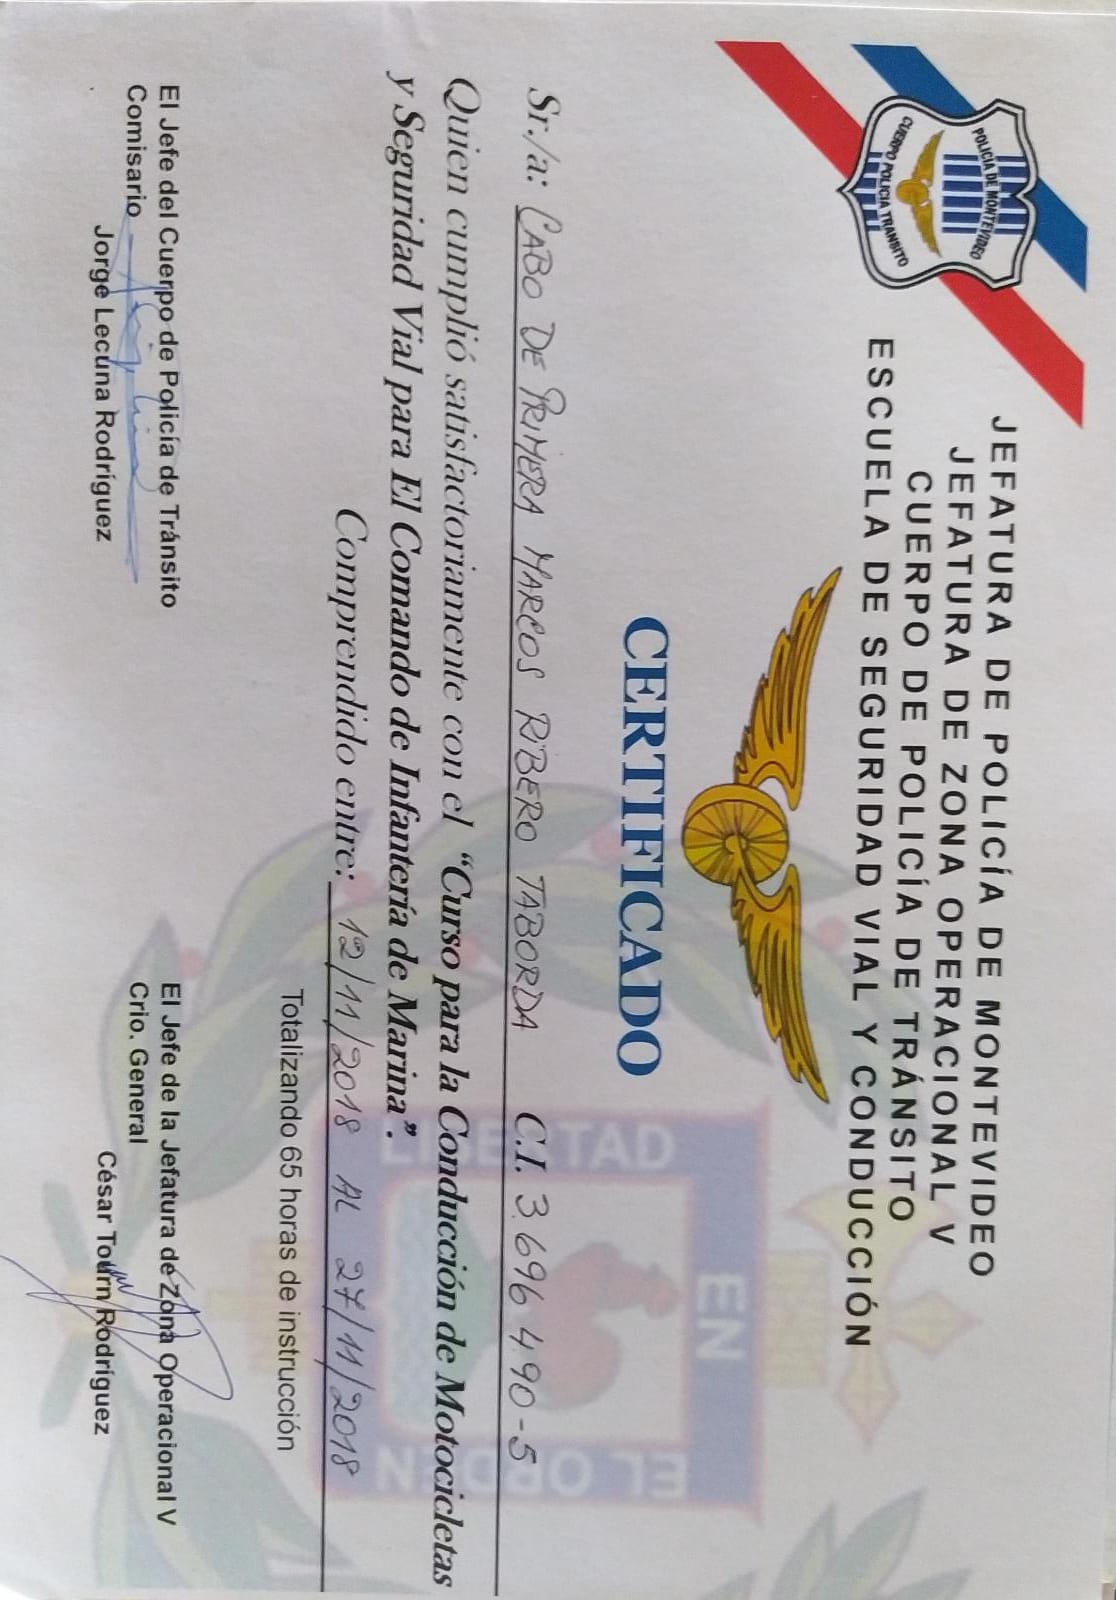 POLICIA DE MONTEVIDEO
CUERPO POLICIA TRANSITO
JEFATURA DE POLICÍA DE MONTEVIDEO
JEFATURA DE ZONA OPERACIONAL V
CUERPO DE POLICÍA DE TRÁNSITO
ESCUELA DE SEGURIDAD VIAL Y CONDUCCIÓN
CERTIFICADO
Sr./a: CABO DE PRIMERA MARCOS RIBERO TABORDA C.I. 3.696 490-5
Quien cumplió satisfactoriamente con el “Curso para la Conducción de Motocicletas
y Seguridad Vial para El Comando de Infantería de Marina”.
Comprendido entre: 12/11/2018 AL 27/11/2018
Totalizando 65 horas de instrucción
El Jefe del Cuerpo de Policía de Tránsito
Comisario
Jorge Lecuna Rodríguez
El Jefe de la Jefatura de Zona Operacional V
Crio. General
César Tourn Rodríguez
LIBERTAD
EN
EL ORDEN